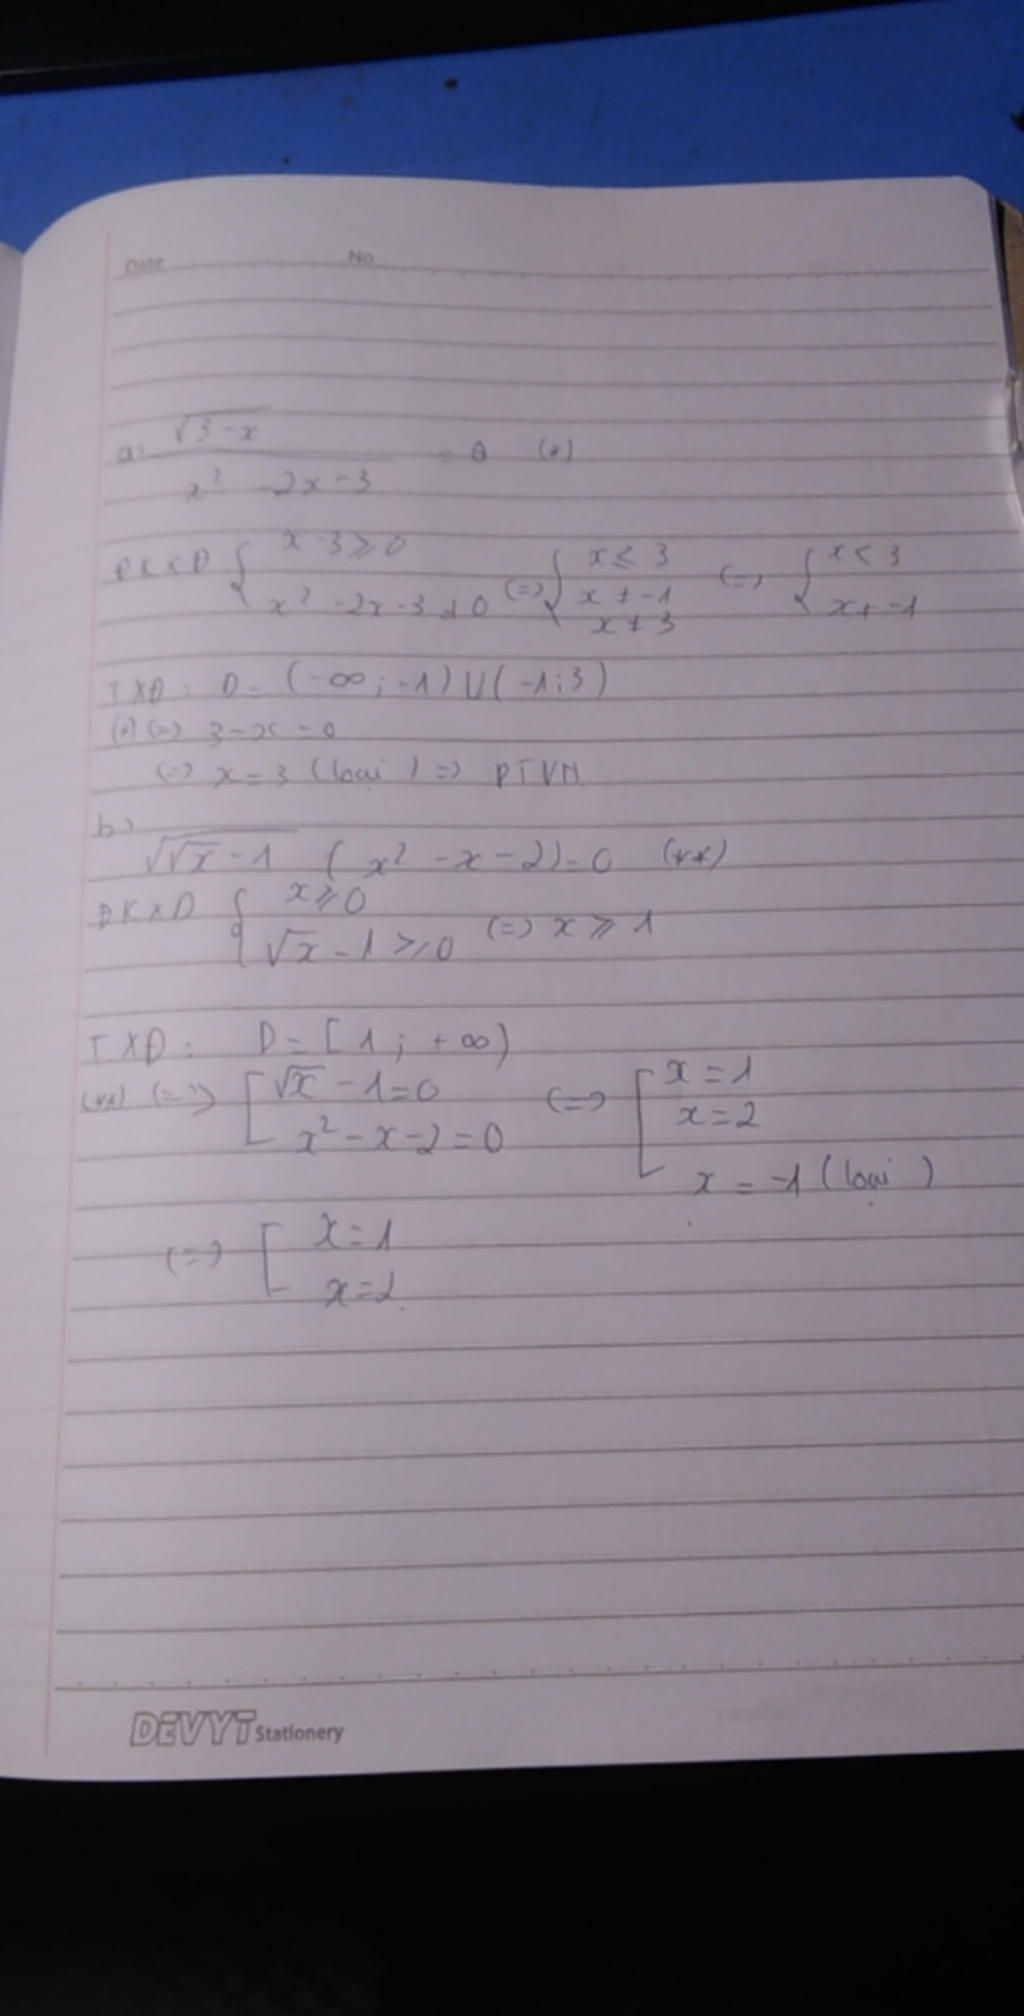 Date No
a) √(3-x) / (x² - 2x - 3) = 0 (*)
ĐKXĐ { x-3 ≥ 0 ; x² - 2x - 3 ≠ 0 (=) { x ≤ 3 ; x ≠ -1 ; x ≠ 3 (=) { x < 3 ; x ≠ -1
TXĐ: D = (-∞; -1) U (-1; 3)
(*) (=) 3-x = 0
(=) x = 3 (loại) => PTVN
b)
√(√x - 1) (x² - x - 2) = 0 (**)
ĐKXĐ { x ≥ 0 ; √x - 1 ≥ 0 (=) x ≥ 1
TXĐ: D = [1; +∞)
(**) (=) [ √x - 1 = 0 ; x² - x - 2 = 0 (=) [ x = 1 ; x = 2 ; x = -1 (loại)
(=) [ x = 1 ; x = 2
DEVYT Stationery